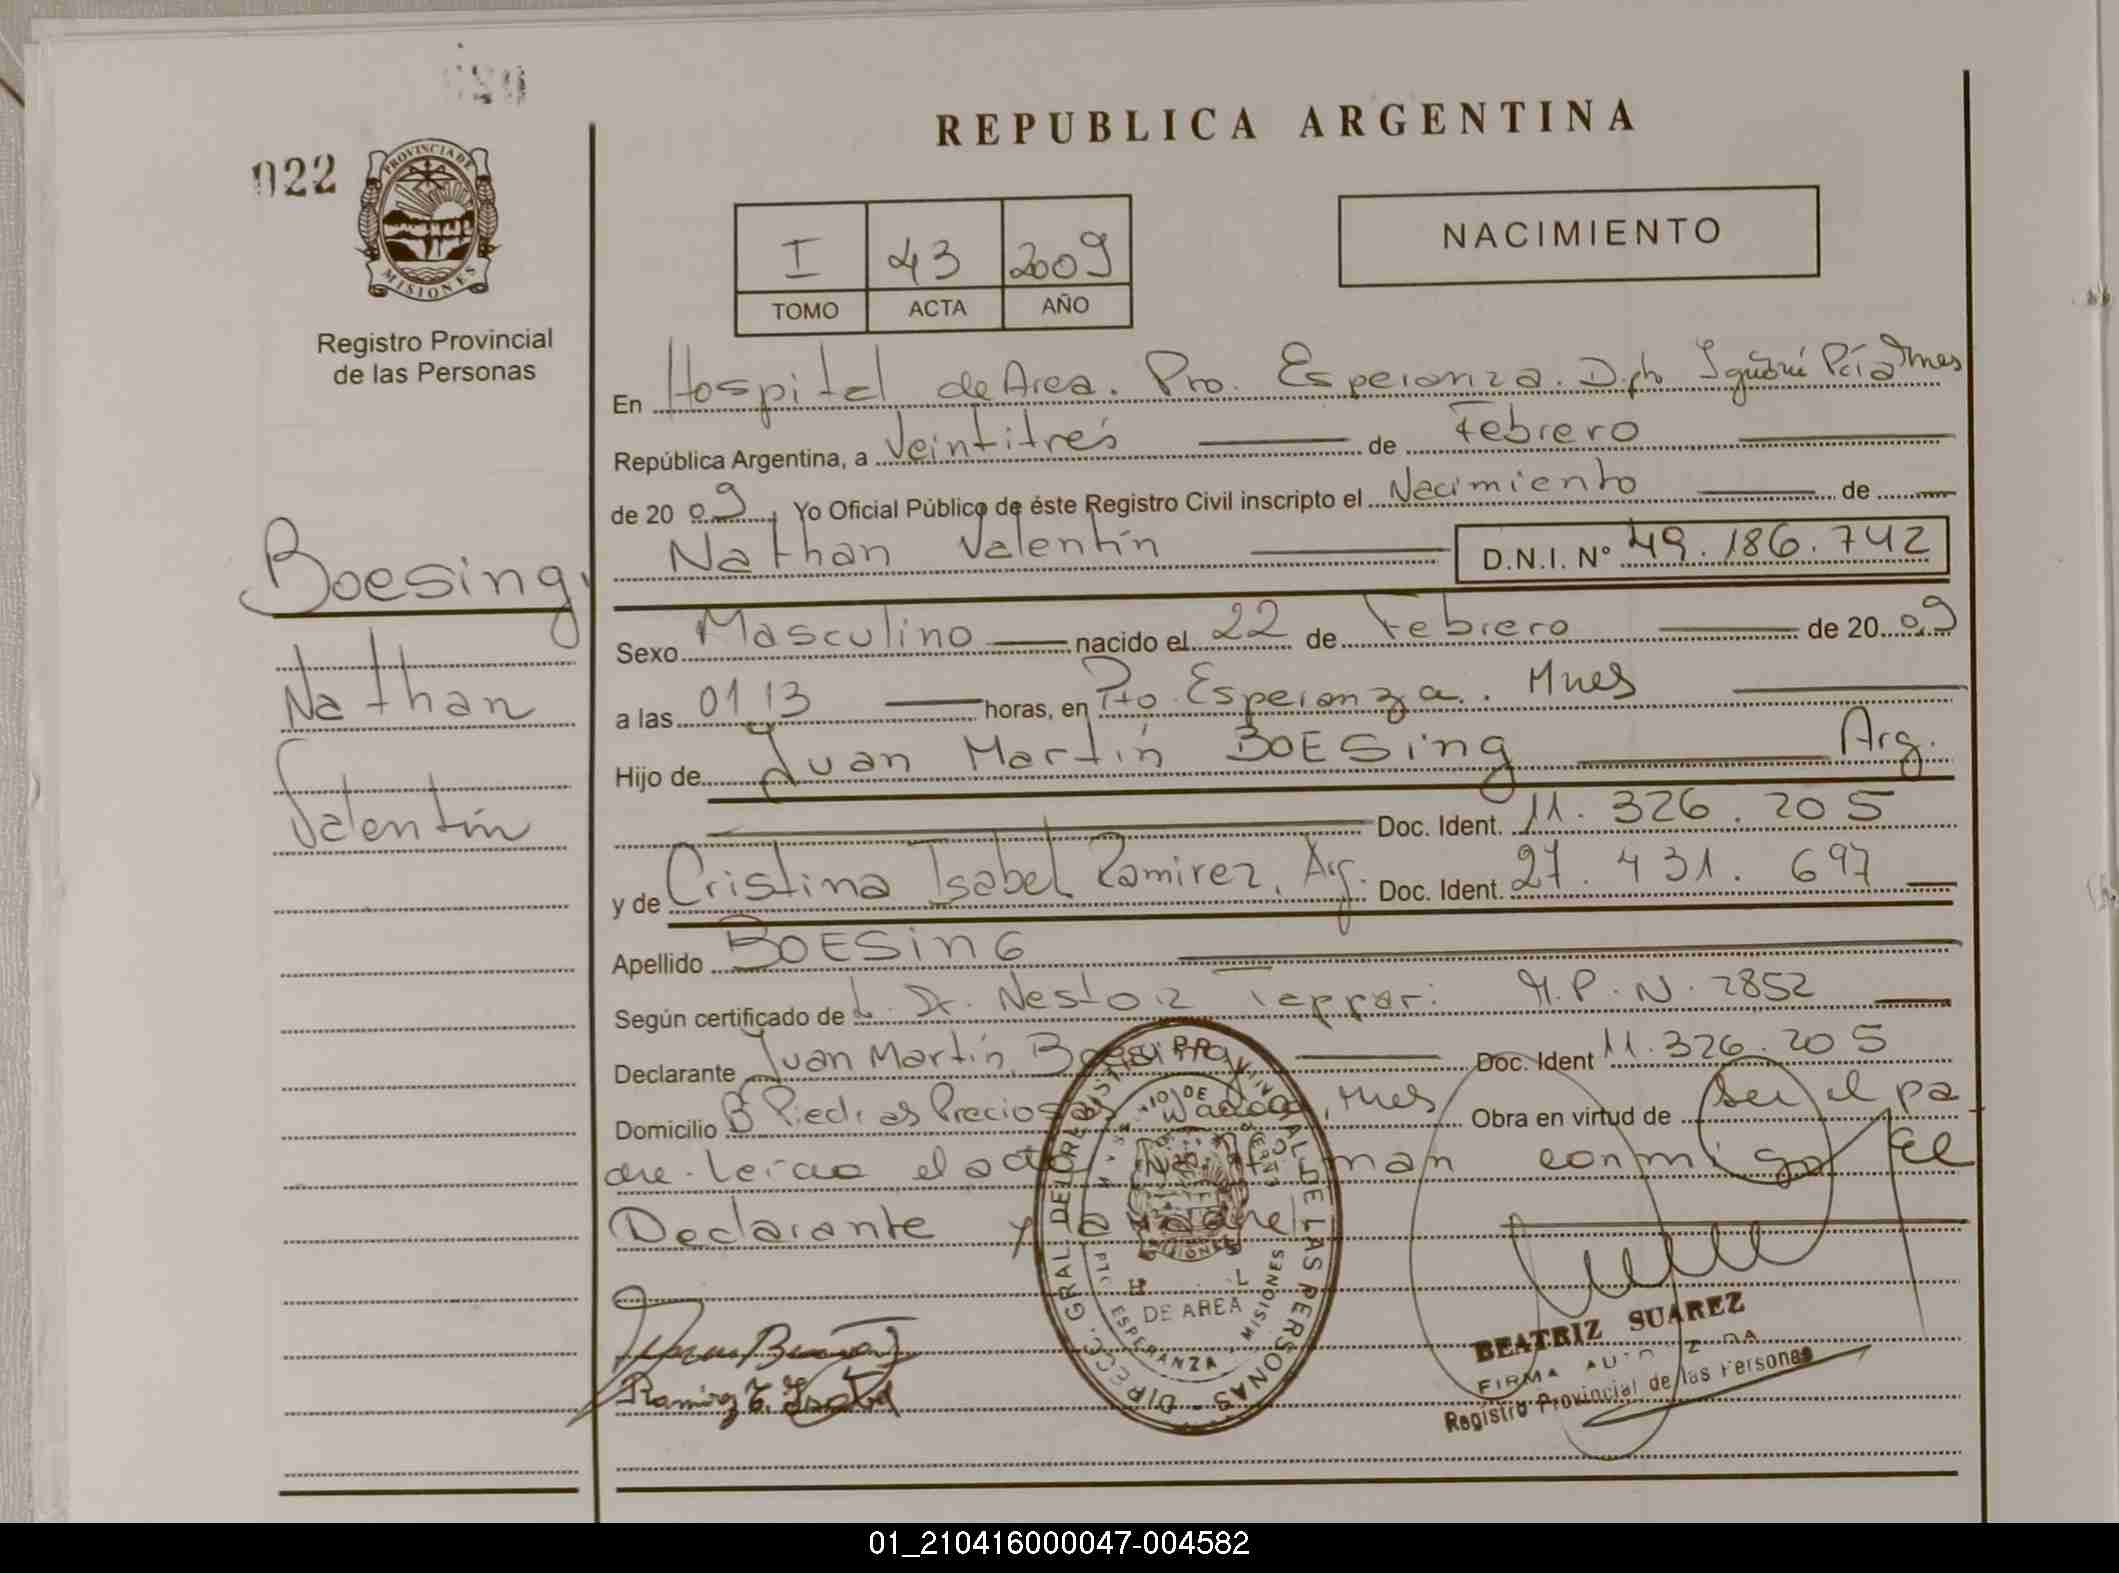 022
PROVINCIA DE
MISIONES
Registro Provincial
de las Personas
Boesing,
Nathan
Valentín
REPUBLICA ARGENTINA
I 43 2009
TOMO ACTA AÑO
NACIMIENTO
En Hospital de Area. Pto. Esperanza. Dpto Iguazú Pcia Mnes
República Argentina, a Veintitrés de Febrero
de 2009, Yo Oficial Público de éste Registro Civil inscripto el Nacimiento de
Nathan Valentín D.N.I. N° 49.186.742
Sexo Masculino nacido el 22 de Febrero de 2009
a las 01 13 horas, en Pto. Esperanza. Mnes
Hijo de Juan Martín BOESing Arg.
Doc. Ident. 11.326.205
y de Cristina Isabel Ramirez, Arg. Doc. Ident. 27.431.697
Apellido BOESinG
Según certificado de Dr. Nestor M.P.N. 2852
Declarante Juan Martín, Boesing Doc. Ident 11.326.205
Domicilio B° Piedras Preciosas Wanda, Mnes Obra en virtud de ser el pa
dre. Leída el acta firman conmigo el
Declarante y la madre
DIRECC. GRAL. DEL REGISTRO PROVINCIAL DE LAS PERSONAS
DE AREA
ESPERANZA, MISIONES
Ramirez C. Isabel
BEATRIZ SUAREZ
FIRMA AUTORIZADA
Registro Provincial de las Personas
01_210416000047-004582